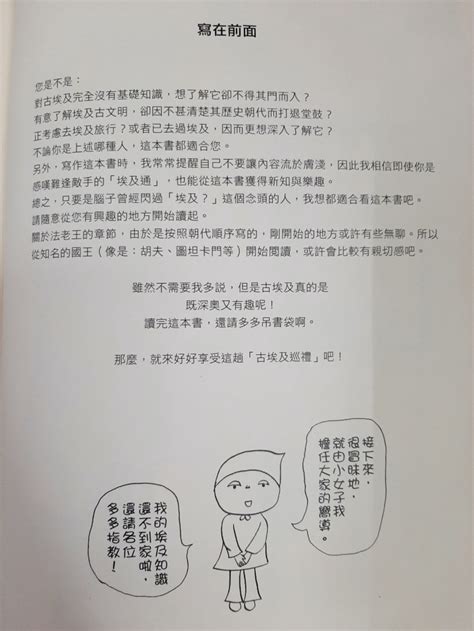 寫在前面
您是不是：
對古埃及完全沒有基礎知識，想了解它卻不得其門而入？
有意了解埃及古文明，卻因不甚清楚其歷史朝代而打退堂鼓？
正考慮去埃及旅行？或者已去過埃及，因而更想深入了解它？
不論你是上述哪種人，這本書都適合您。
另外，寫作這本書時，我常常提醒自己不要讓內容流於膚淺，因此我相信即使你是
感嘆難逢敵手的「埃及通」，也能從這本書獲得新知與樂趣。
總之，只要是腦子曾經閃過「埃及？」這個念頭的人，我想都適合看這本書吧。
請隨意從您有興趣的地方開始讀起。
關於法老王的章節，由於是按照朝代順序寫的，剛開始的地方或許有些無聊。所以
從知名的國王（像是：胡夫、圖坦卡門等）開始閱讀，或許會比較有親切感吧。
雖然不需要我多説，但是古埃及真的是
既深奧又有趣呢！
讀完這本書，還請多多吊書袋啊。
那麼，就來好好享受這趟「古埃及巡禮」吧！
接下來，
很冒昧地，
就由小女子我
擔任大家的嚮導。
我的埃及知識
還不到家啦，
還請各位
多多指教！